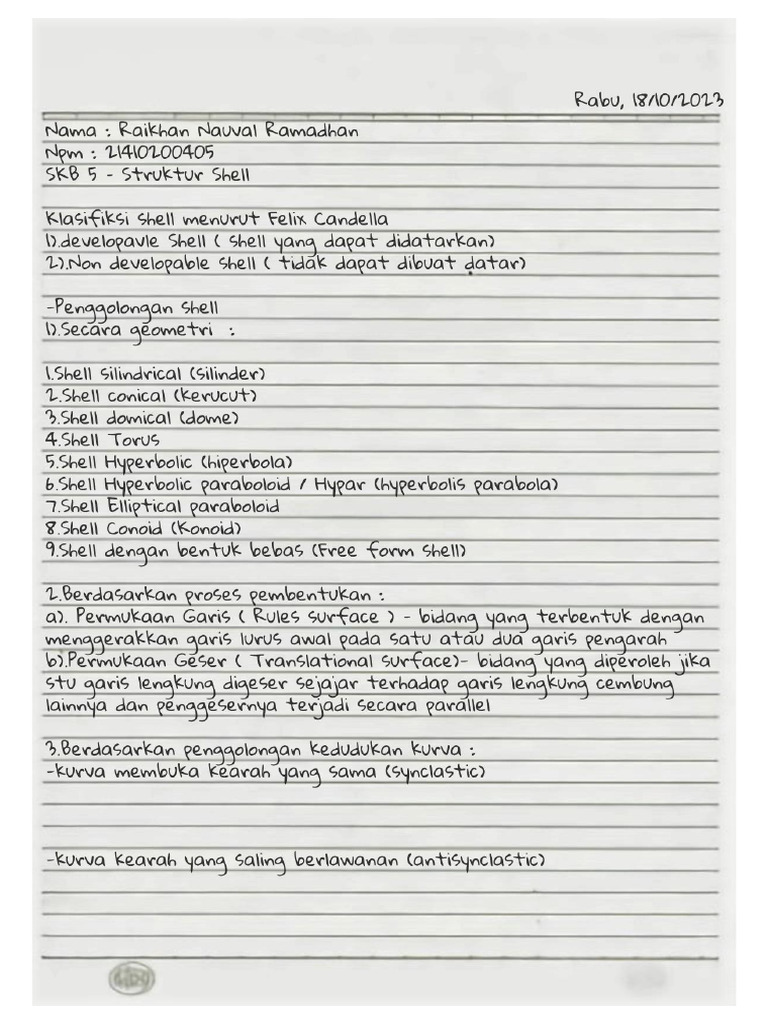 Rabu, 18/10/2023
Nama : Raikhan Nauval Ramadhan
Npm : 21410200405
SKB 5 - Struktur Shell
Klasifiksi shell menurut Felix Candella
1).developavle Shell ( shell yang dapat didatarkan)
2).Non developable shell ( tidak dapat dibuat datar)
-Penggolongan shell
1).Secara geometri :
1.Shell silindrical (silinder)
2.Shell conical (kerucut)
3.Shell domical (dome)
4.Shell Torus
5.Shell Hyperbolic (hiperbola)
6.Shell Hyperbolic paraboloid / Hypar (hyperbolis parabola)
7.Shell Elliptical paraboloid
8.Shell Conoid (Konoid)
9.Shell dengan bentuk bebas (Free form shell)
2.Berdasarkan proses pembentukan :
a). Permukaan Garis ( Rules surface ) - bidang yang terbentuk dengan
menggerakkan garis lurus awal pada satu atau dua garis pengarah
b).Permukaan Geser ( Translational surface)- bidang yang diperoleh jika
stu garis lengkung digeser sejajar terhadap garis lengkung cembung
lainnya dan penggesernya terjadi secara parallel
3.Berdasarkan penggolongan kedudukan kurva :
-kurva membuka kearah yang sama (synclastic)
-kurva kearah yang saling berlawanan (antisynclastic)